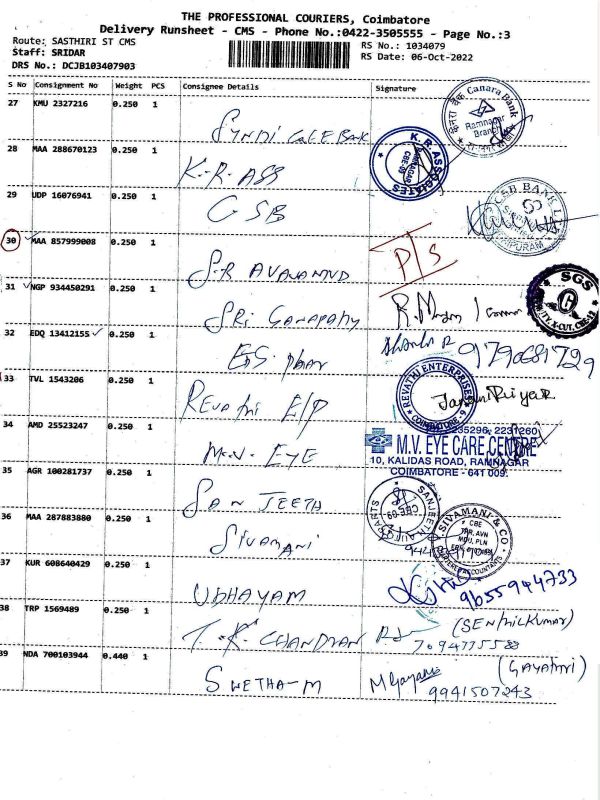 THE PROFESSIONAL COURIERS, Coimbatore
Delivery Runsheet - CMS - Phone No.:0422-3505555 - Page No.:3
Route: SASTHIRI ST CMS
RS No.: 1034079
Staff: SRIDAR
RS Date: 06-Oct-2022
DRS No.: DCJB103407903
S No Consignment No Weight PCS Consignee Details Signature
27 KMU 2327216 0.250 1
Canara Bank
Ramnagar
Branch
28 MAA 288670123 0.250 1 K-R-ASS
K.R. ASSOCIATES
29 UDP 16076941 0.250 1 CSB
CSB BANK
30 MAA 857999008 0.250 1 P/S
31 NGP 934450291 0.250 1 Sri Ganapathy
SGS
32 EDQ 13412155 0.250 1 9790681729
33 TVL 1543206 0.250 1 Revathi E/P
REVATHI ENTERPRISES
COIMBATORE
34 AMD 25523247 0.250 1 M.V. EYE
235296, 2231260
M.V. EYE CARE CENTRE
10, KALIDAS ROAD, RAMNAGAR
COIMBATORE - 641 009.
35 AGR 100281737 0.250 1 SANJEETH
36 MAA 287883880 0.250 1 Sivamani
SIVAMANI & CO
37 KUR 608640429 0.250 1 UDHAYAM 9655944733
38 TRP 1569489 0.250 1 T.K. CHANDRAN (SENTHILKUMAR)
7094775588
39 NDA 700103944 0.440 1 SWETHA-M (GAYATHRI)
9941507243